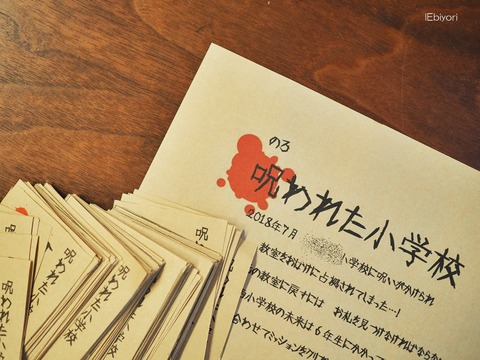 !Ebiyori
のろ
呪われた小学校
2018年7月 小学校に呪いがかけられ
教室をおばけに占領されてしまった…!
の教室に戻すには お札を見つけなければならない
小学校の未来は6年生にかかっ
合わせてミッションをクリア
呪
呪われた
呪われた小学校
呪われた小学校
呪われた小